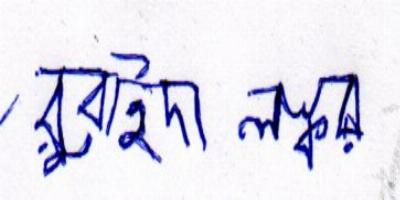 রুবাইদা লস্কর